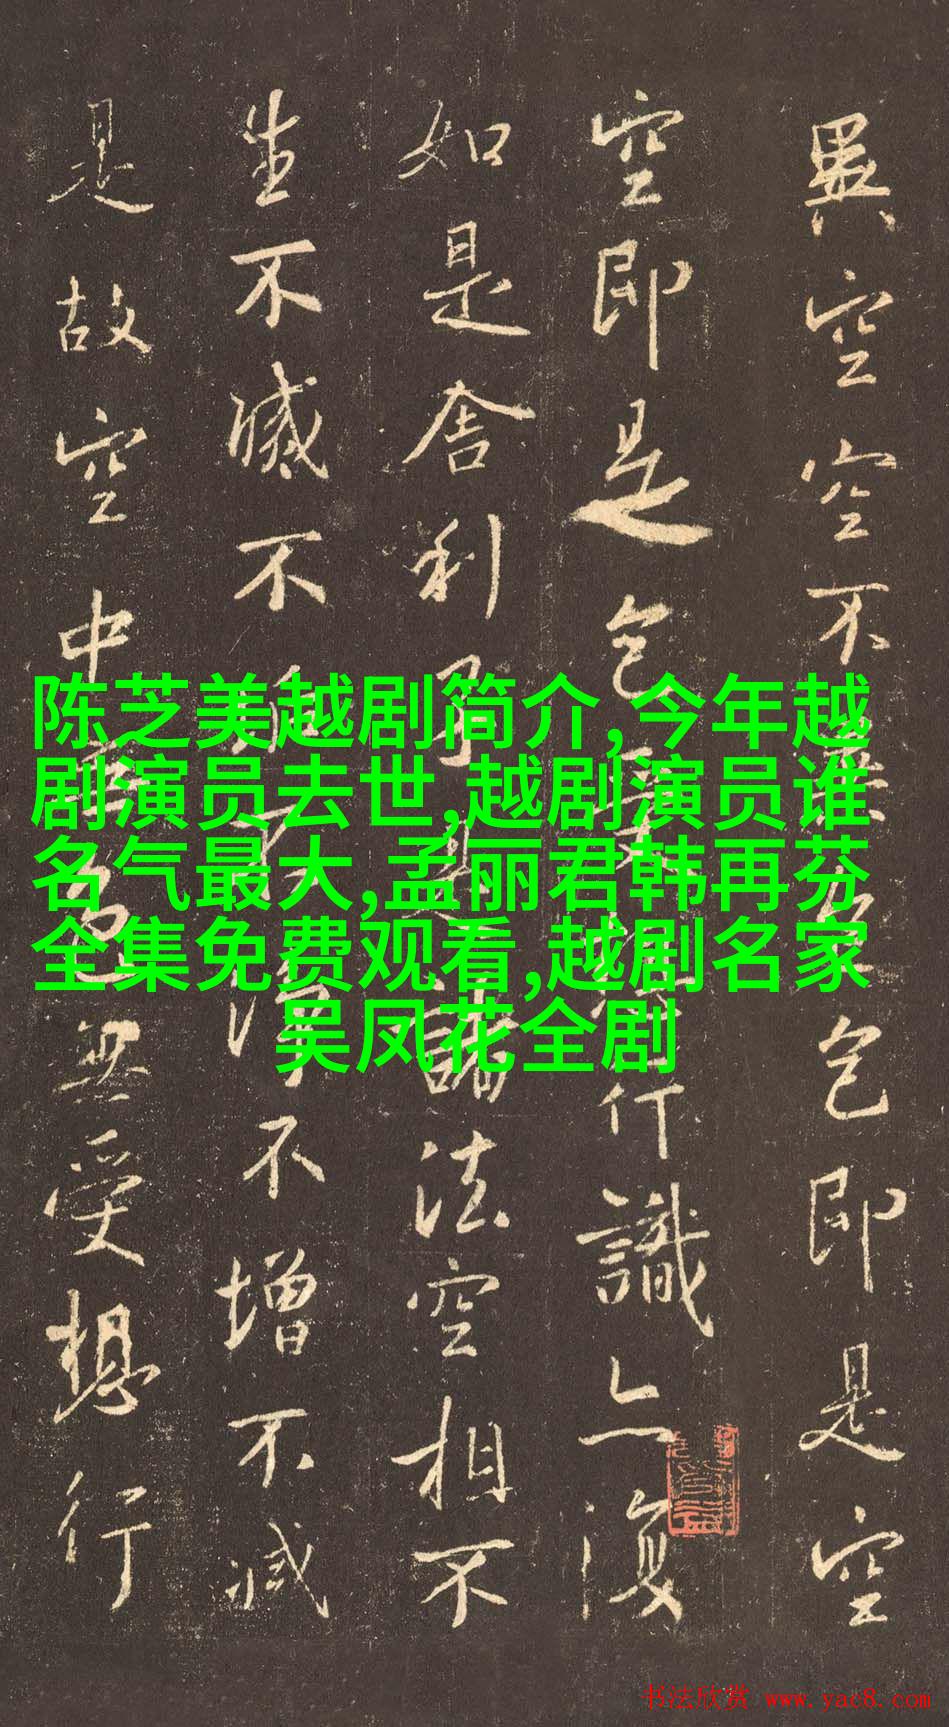 異空空不異色色即是空
空即是色受想行識亦復
如是舍利子是諸法空相不
生不滅不垢不淨不增不減
是故空中無色無受想行
陈芝美越剧简介,今年越
剧演员去世,越剧演员谁
名气最大,孟丽君韩再芬
全集免费观看,越剧名家
吴凤花全剧
书法欣赏 www.yac8.com